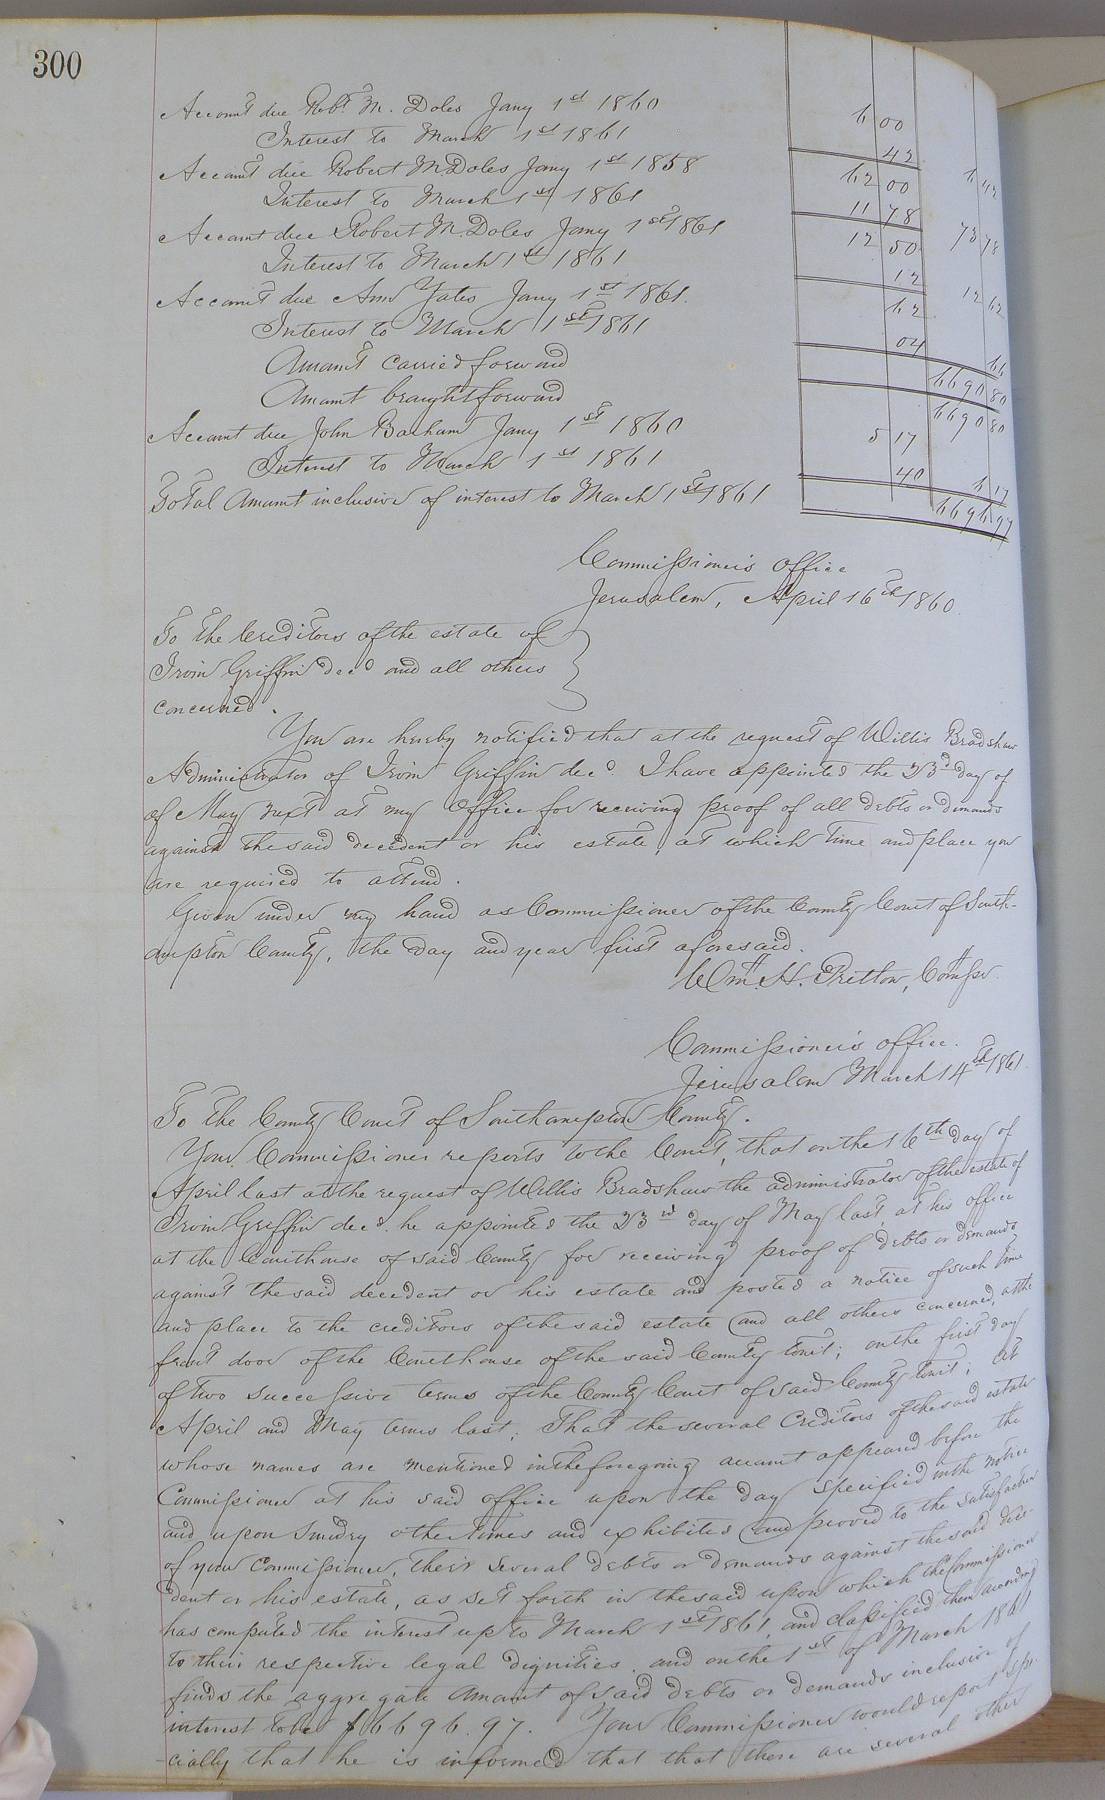 300
Account due Robt. M. Doles Jany 1st 1860 6 00
Interest to March 1st 1861 42 6 42
Account due Robert M Doles Jany 1st 1858 62 00
Interest to March 1st 1861 11 78 73 78
Account due Robert M. Doles Jany 1st 1861 12 50
Interest to March 1st 1861 12 12 62
Account due Ann Yates Jany 1st 1861. 62
Interest to March 1st 1861 04 66
Amount carried forward 6690 80
Amount brought forward 6690 80
Account due John Barham Jany 1st 1860 5 17
Interest to March 1st 1861 40 6 17
Total Amount inclusive of interest to March 1st 1861 6696 97
Commissioner's office
Jerusalem, April 16th 1860.
To the Creditors of the estate of
Irvin Griffin decd and all others
concerned.
You are hereby notified that at the request of Willis Bradshaw
Administrator of Irvin Griffin decd. I have appointed the 23rd day of
of May next at my Office for receiving proof of all debts or demands
against the said decedent or his estate, at which time and place you
are required to attend.
Given under my hand as Commissioner of the County Court of South-
ampton County, the day and year first aforesaid.
Wm. H. Pretlow, Commsr.
Commissioner's office.
Jerusalem March 14th 1861.
To the County Court of Southampton County.
Your Commissioner reports to the Court, that on the 16th day of
April last at the request of Willis Bradshaw the administrator of the estate of
Irvin Griffin decd. he appointed the 23rd day of May last, at his office
at the Courthouse of said County for receiving proof of debts or demands
against the said decedent or his estate and posted a notice of such time
and place to the creditors of the said estate and all others concerned, at the
front door of the Courthouse of the said County towit; on the first day
of two successive terms of the County Court of said County towit; At
April and May terms last; That the several Creditors of the said estate
whose names are mentioned in the foregoing account appeared before the
Commissioner at his said office upon the day specified in the notice
and upon sundry other times and exhibited and proved to the satisfaction
of your Commissioner, their several debts or demands against the said dece-
dent or his estate, as set forth in the said upon which the Commissioner
has computed the interest up to March 1st 1861, and classified them according
to their respective legal dignities, and on the 1st of March 1861
finds the aggregate amount of said debts or demands inclusive of
interest to be $6696.97. Your Commissioner would report spe-
-cially that he is informed that that there are several other